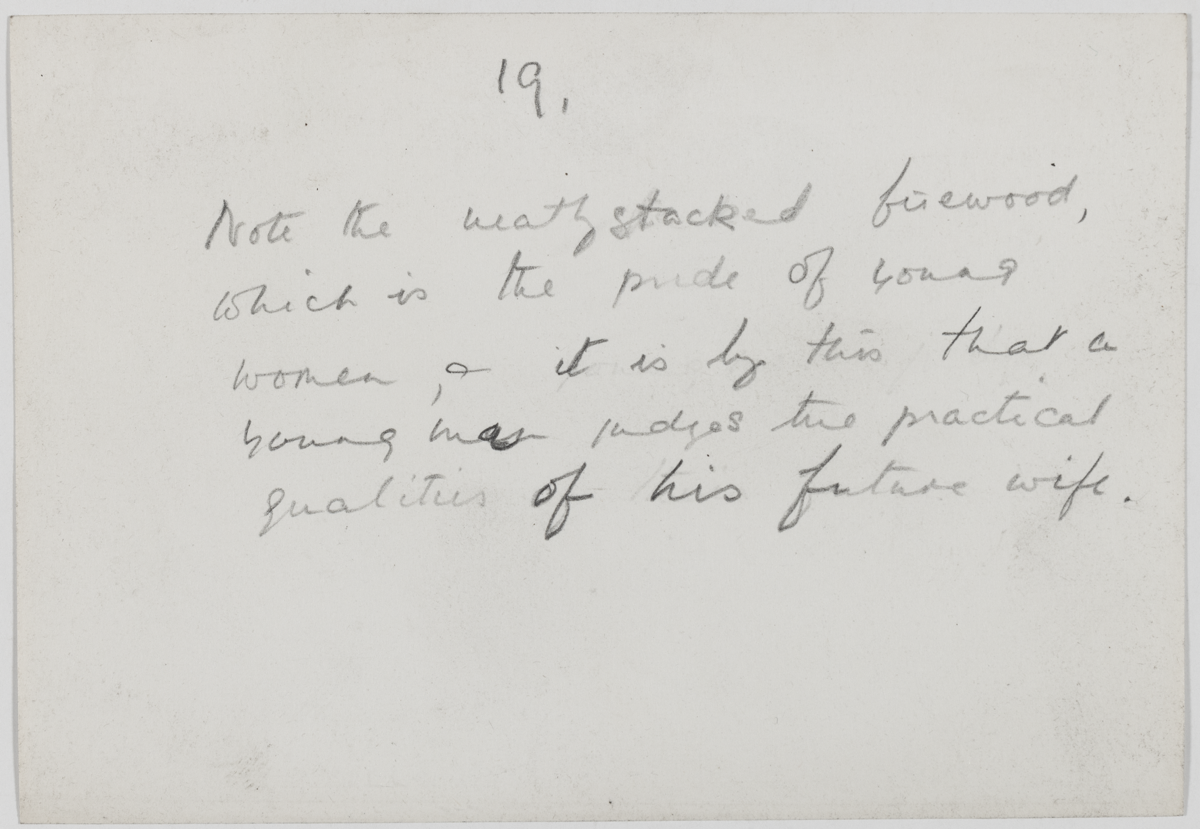 19.
Note the neatly stacked firewood,
which is the pride of young
women, & it is by this that a
young man judges the practical
qualities of his future wife.